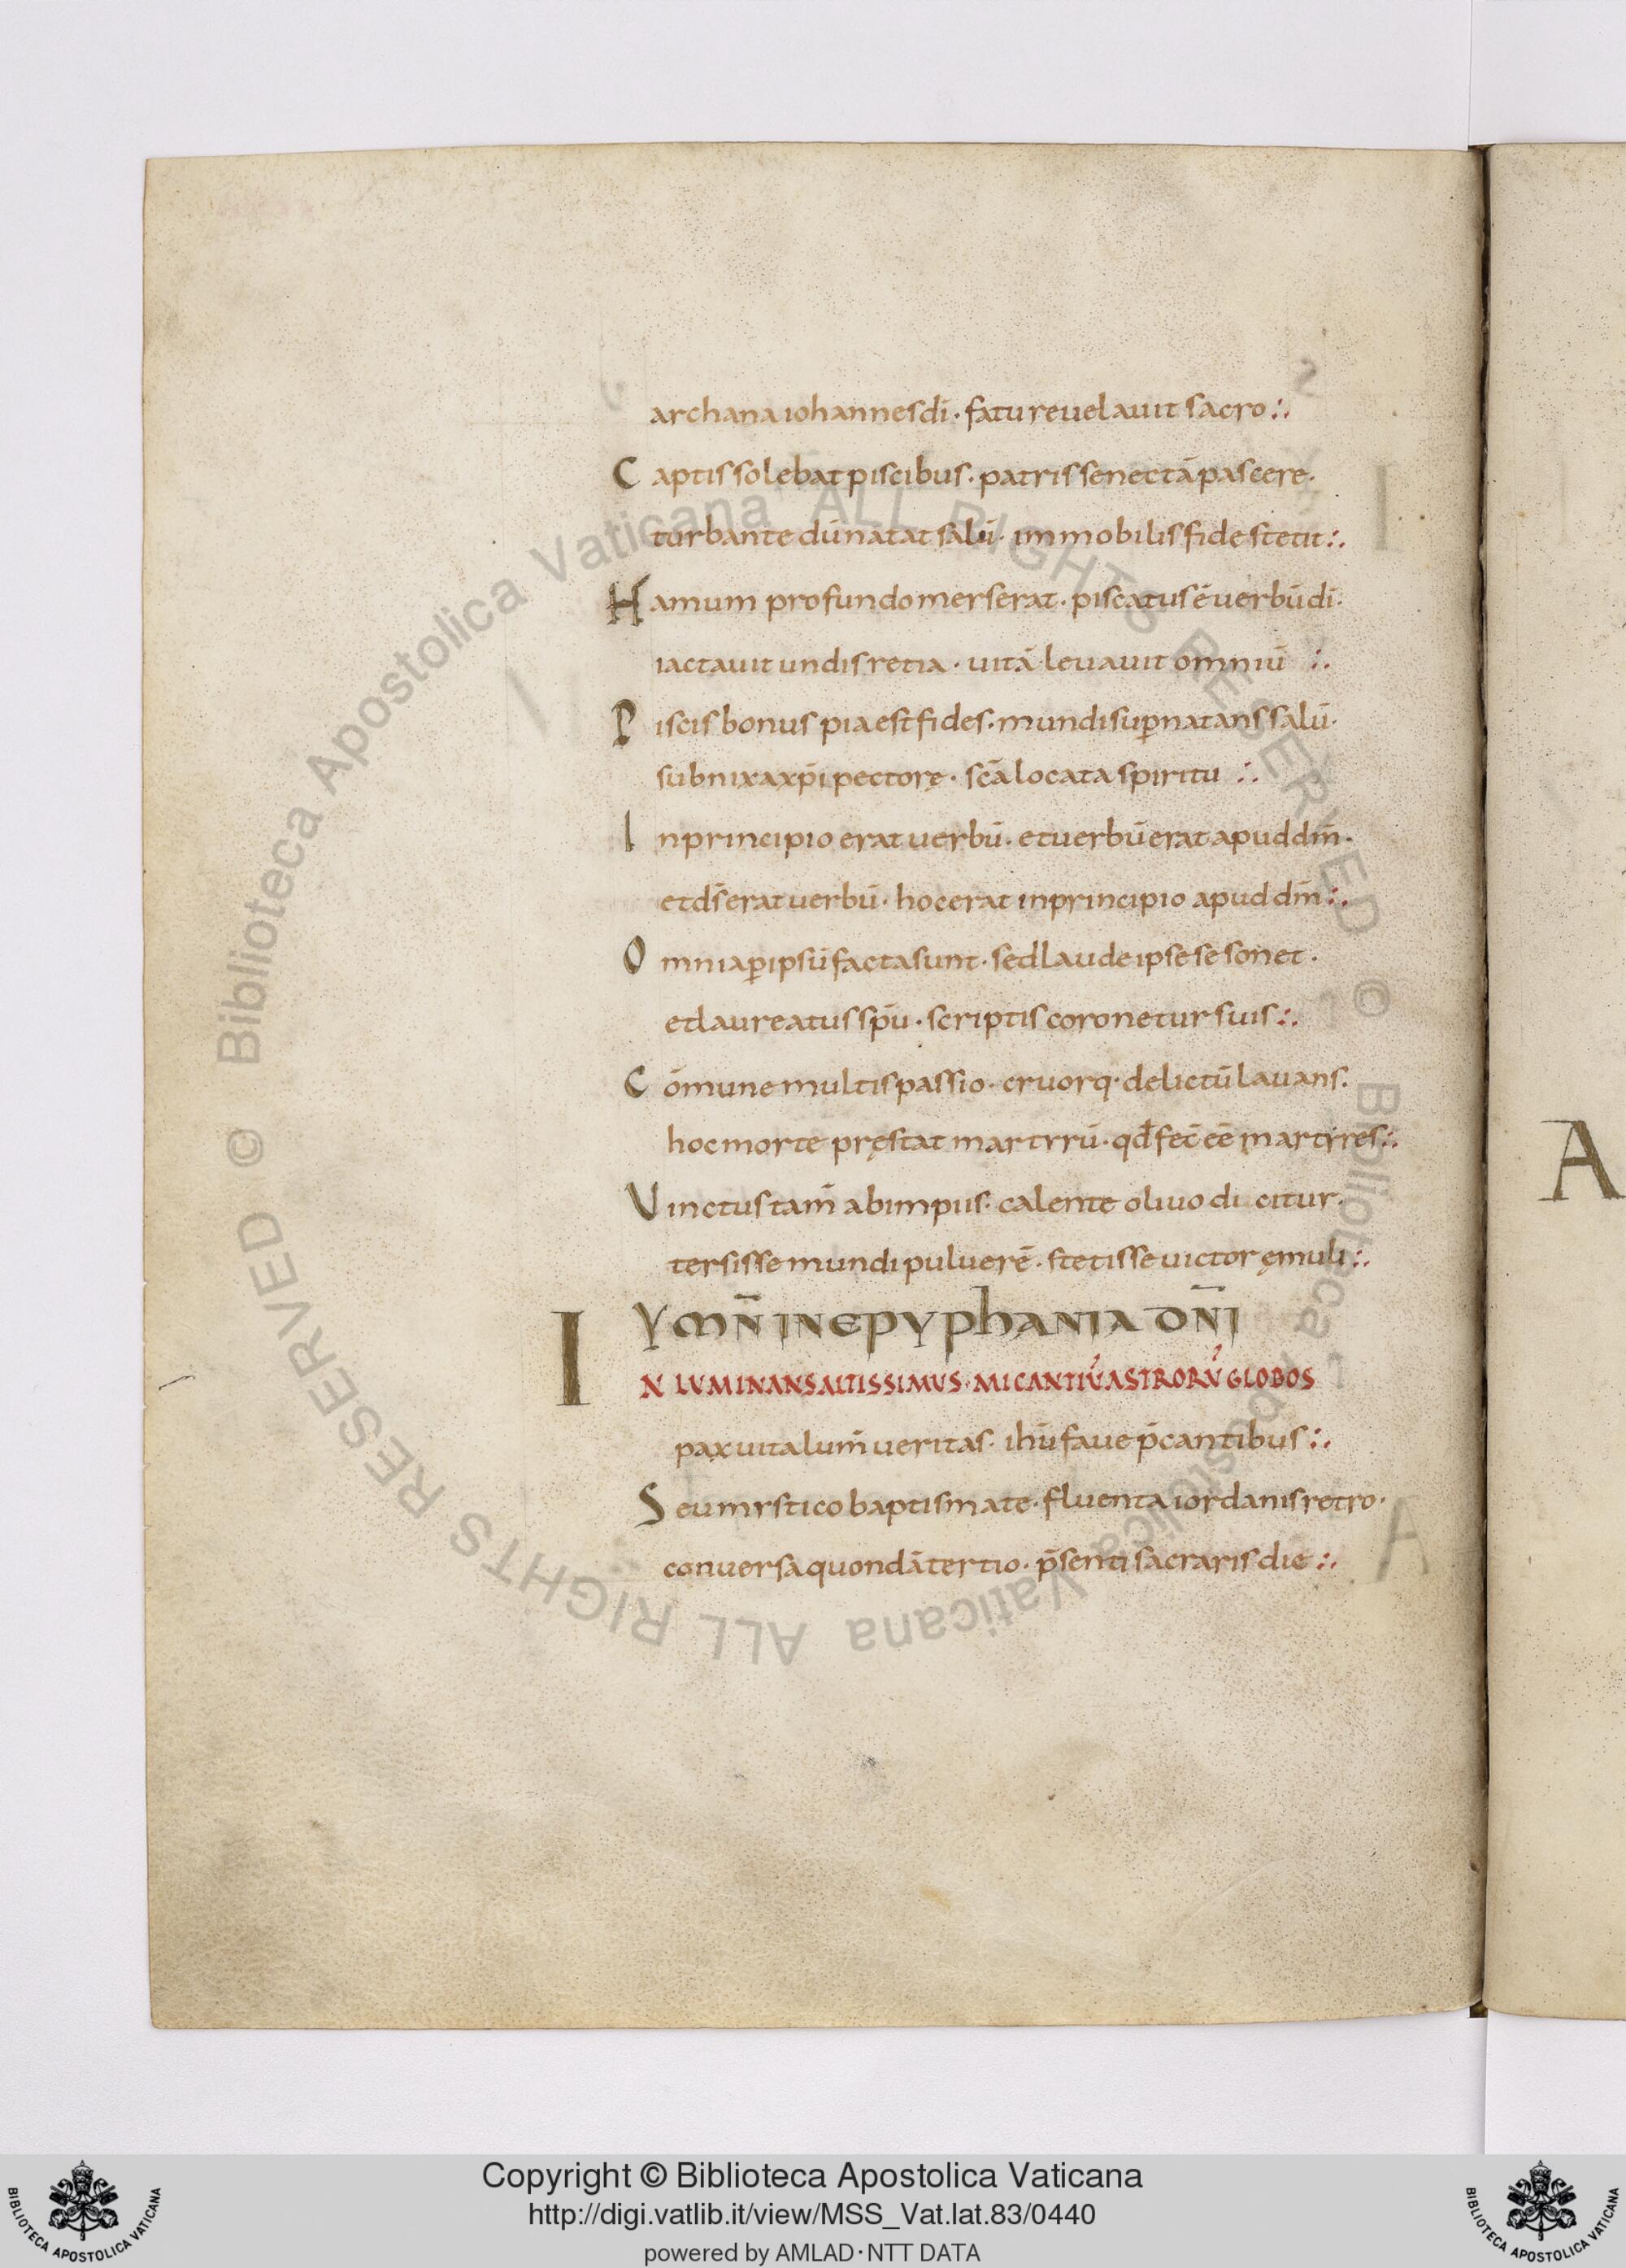 archana iohannes dī · fatu reuelauit sacro :.
Captis solebat piscibus · patris senectā pascere ·
turbante dū natat salū · immobilis fide stetit :.
Hamum profundo merserat · piscatus ē uerbū dī ·
iactauit undis retia · uitā leuauit omniū :.
Piscis bonus pia est fides · mundi suꝑnatans salū ·
subnixa xp̄i pectorę · scā locata spiritu :.
In principio erat uerbū · et uerbū erat apud dm̄ ·
et ds̄ erat uerbū · hoc erat in principio apud dm̄ :.
Omnia ꝑ ipsū facta sunt · sed laude ipse se sonet ·
et laureatus sp̄u · scriptis coronetur suis :.
Cōmune multis passio · cruorq· delictū lauans ·
hoc morte pręstat martyrū · qd̄ fec̄ ēē martyres :.
Vinctus tam̄ ab impiis · calente oliuo dicitur ·
tersisse mundi puluerē · stetisse uictor ęmuli :.
YMN̄ IN EPYPHANIA DN̄I
INLUMINANS ALTISSIMUS · MICANTIŪ ASTRORŪ GLOBOS
pax uita lum̄ ueritas · ihū faue p̄cantibus :.
Seu mystico baptismate · fluenta iordanis retro ·
conuersa quondā tertio · p̄senti sacraris die :.
A
© Biblioteca Apostolica Vaticana ALL RIGHTS RESERVED © Biblioteca Apostolica Vaticana ALL RIGHTS RESERVED
Copyright © Biblioteca Apostolica Vaticana
http://digi.vatlib.it/view/MSS_Vat.lat.83/0440
powered by AMLAD · NTT DATA
BIBLIOTECA APOSTOLICA VATICANA
BIBLIOTECA APOSTOLICA VATICANA